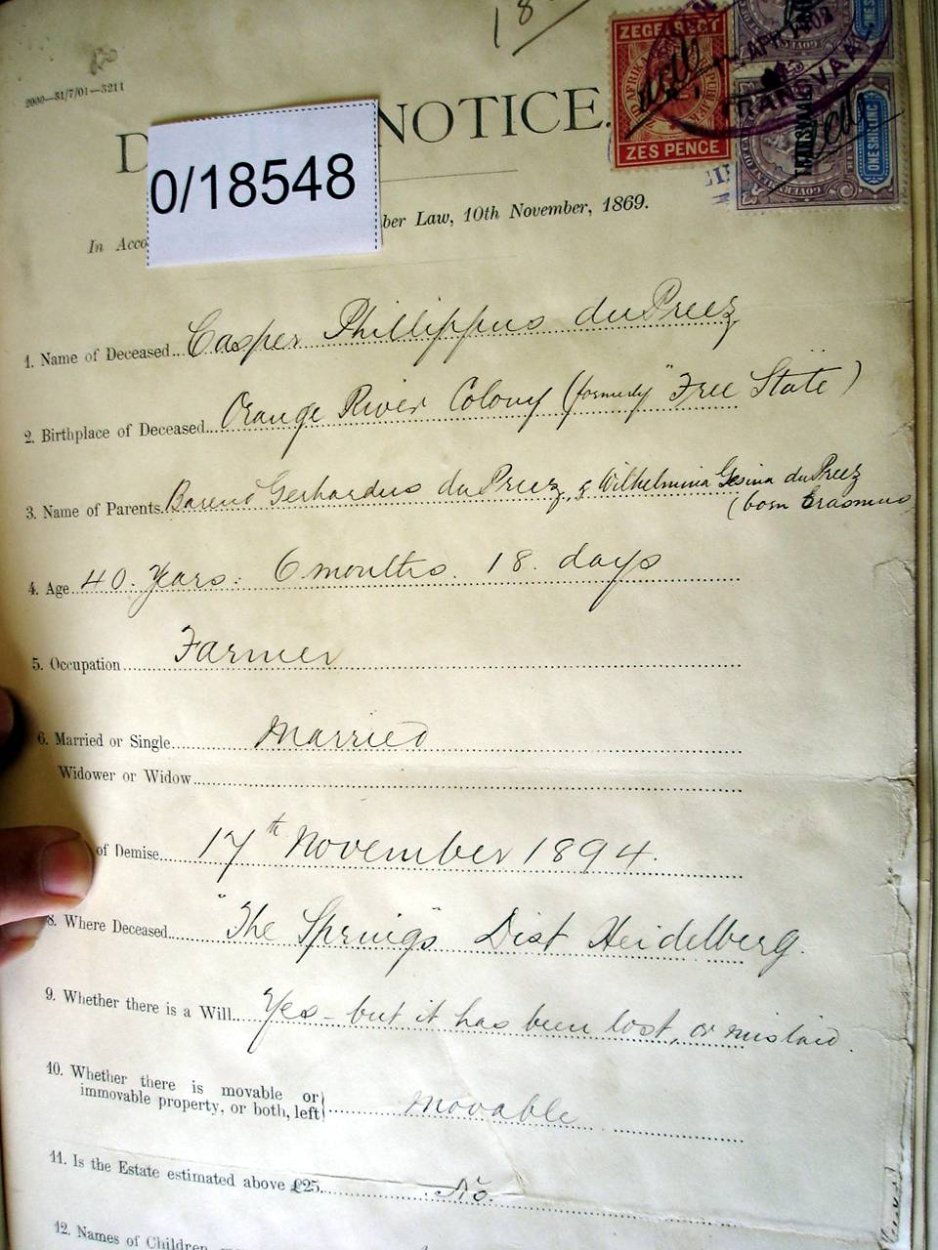 18
2000—31/7/01—5211
D NOTICE.
0/18548
ZEGELRECHT
ZES PENCE
TRANSVAAL
ONE SHILLING
In Acco ber Law, 10th November, 1869.
1. Name of Deceased...Casper Phillippus du Preez
2. Birthplace of Deceased...Orange River Colony (formerly "Free State")
3. Name of Parents. Barend Gerhardus du Preez, & Wilhelmina Gesina du Preez
(born Erasmus
4. Age 40. Years: 6 months. 18. days
5. Occupation Farmer
6. Married or Single Married
Widower or Widow
of Demise 17th November 1894.
8. Where Deceased "The Springs" Dist Heidelberg.
9. Whether there is a Will Yes - but it has been lost, or mislaid.
10. Whether there is movable or
immovable property, or both, left movable
11. Is the Estate estimated above £25 No.
12. Names of Children